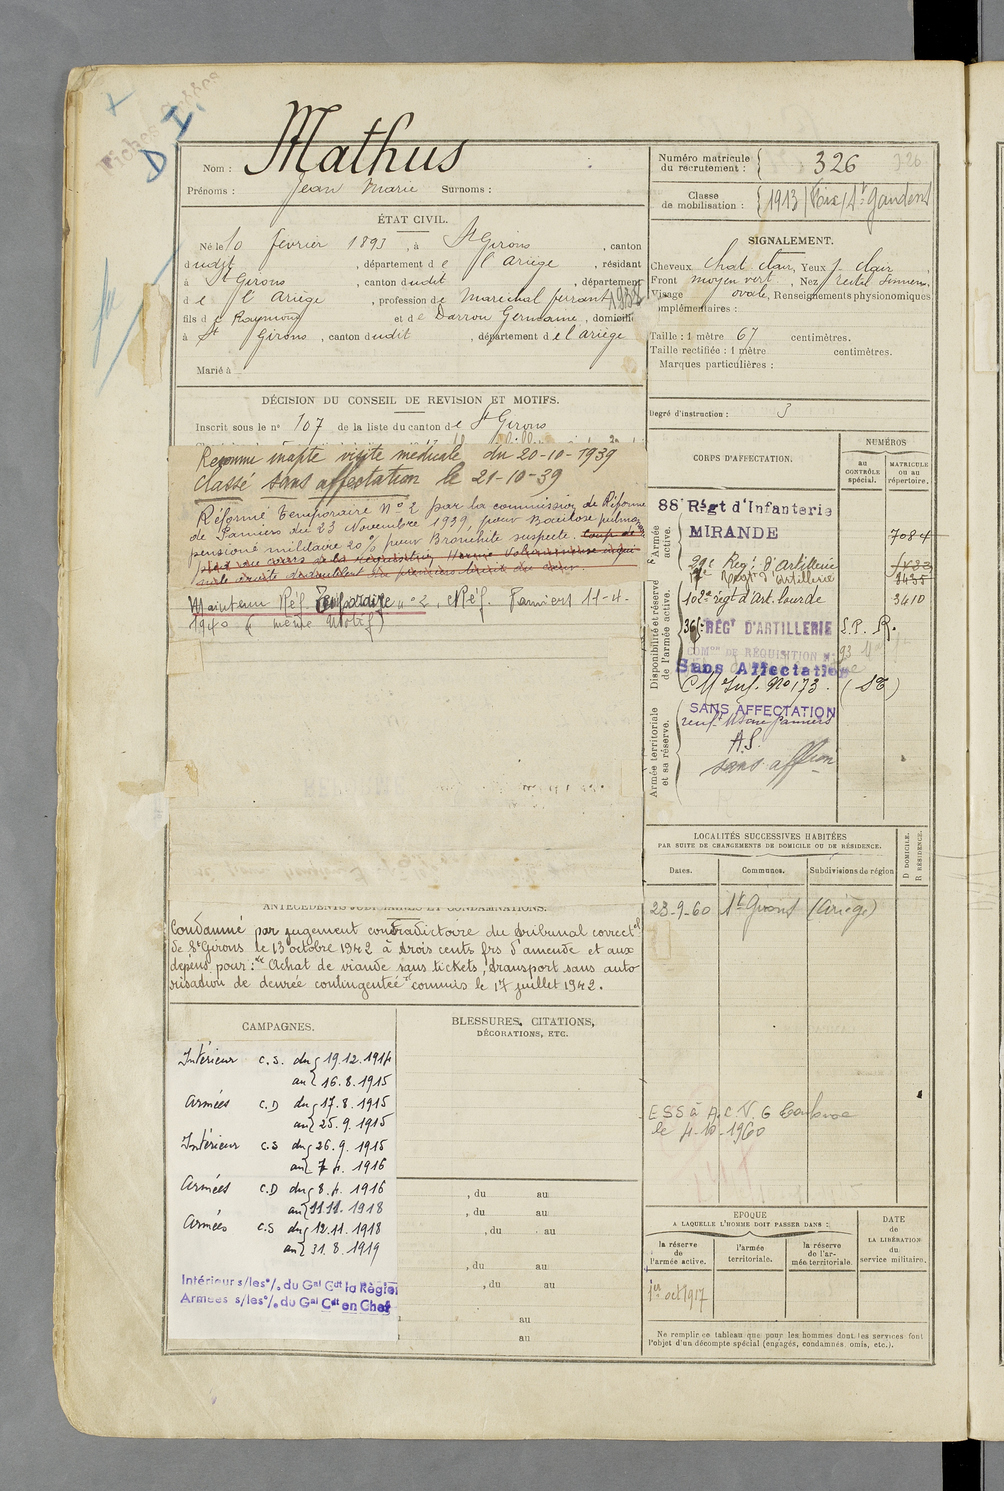 D I.
Nom : Mathus
Prénoms : Jean Marie Surnoms :
ÉTAT CIVIL.
Né le 10 février 1893, à St Girons, canton
dudit, département de l'Ariège, résidant
à St Girons, canton dudit, département
de l'Ariège, profession de Maréchal ferrant 1933
fils de Raymond et de Darrou Germaine, domicilié
à St Girons, canton dudit, département de l'ariège
Marié à
DÉCISION DU CONSEIL DE REVISION ET MOTIFS.
Inscrit sous le n° 107 de la liste du canton de St Girons
Reconnu inapte visite médicale du 20-10-1939
Classé sans affectation le 21-10-39
Réformé temporaire N° 2 par la commission de Réforme
de Pamiers du 23 Novembre 1939, pour Bacilose pulmo
pensioné militaire 20% pour Bronchite suspecte.
Maintenu Réf. Temporaire n° 2, Réf. Pamiers 11-4-
1940 (même Motif)
ANTÉCÉDENTS JUDICIAIRES ET CONDAMNATIONS.
Condamné par jugement contradictoire du tribunal correctel
de St Girons le 13 octobre 1942 à trois cents frs d'amende et aux
dépens pour : Achat de viande sans tickets, transport sans auto
risation de denrée contingenteé commis le 17 juillet 1942.
CAMPAGNES.
Intérieur C.S. du 19.12.1914
au 16.8.1915
Armées C.D du 17.8.1915
au 25.9.1915
Intérieur C.S du 26.9.1915
au 7.4.1916
Armées C.D du 8.4.1916
au 11.11.1918
Armées C.S du 12.11.1918
au 31.8.1919
Intérieur s/les °/. du Gal Cdt la Région
Armées s/les °/. du Gal Cdt en Chef
BLESSURES, CITATIONS,
DÉCORATIONS, ETC.
, du au
, du au
, du au
, du au
, du au
au
au
Numéro matricule
du recrutement : 326 326
Classe
de mobilisation : 1913 Foix / St Gaudens
SIGNALEMENT.
Cheveux chat clair, Yeux clair,
Front moyen vert, Nez rectil
Visage ovale, Renseignements physionomiques
complémentaires :
Taille : 1 mètre 67 centimètres.
Taille rectifiée : 1 mètre centimètres.
Marques particulières :
Degré d'instruction : 3
CORPS D'AFFECTATION.
NUMÉROS
au
CONTRÔLE
spécial.
MATRICULE
ou au
répertoire.
Armée
active.
88e Régt d'Infanterie
MIRANDE 7084
Disponibilité et réserve
de l'armée active.
29e Reg. d'artillerie
regt d'artillerie 1435
102e régt d'Art. lourde 3410
36e REGT D'ARTILLERIE S.P. R.
COMon DE RÉQUISITION N° 93
Sans Affectation
CM Inf. No 173. (ST)
Armée territoriale
et sa réserve.
SANS AFFECTATION
A.S.
sans affion
LOCALITÉS SUCCESSIVES HABITÉES
PAR SUITE DE CHANGEMENTS DE DOMICILE OU DE RÉSIDENCE.
Dates.
Communes.
Subdivisions de région
D DOMICILE.
R RÉSIDENCE.
23-9-60 St Girons (Ariège)
ESS à A.C.V.G Toulouse
le 4-10-1960
EPOQUE
A LAQUELLE L'HOMME DOIT PASSER DANS :
la réserve
de
l'armée active.
l'armée
territoriale.
la réserve
de l'ar-
mée territoriale.
DATE
de
LA LIBÉRATION
du
service militaire.
1er oct 1917
Ne remplir ce tableau que pour les hommes dont les services font
l'objet d'un décompte spécial (engagés, condamnés omis, etc.).